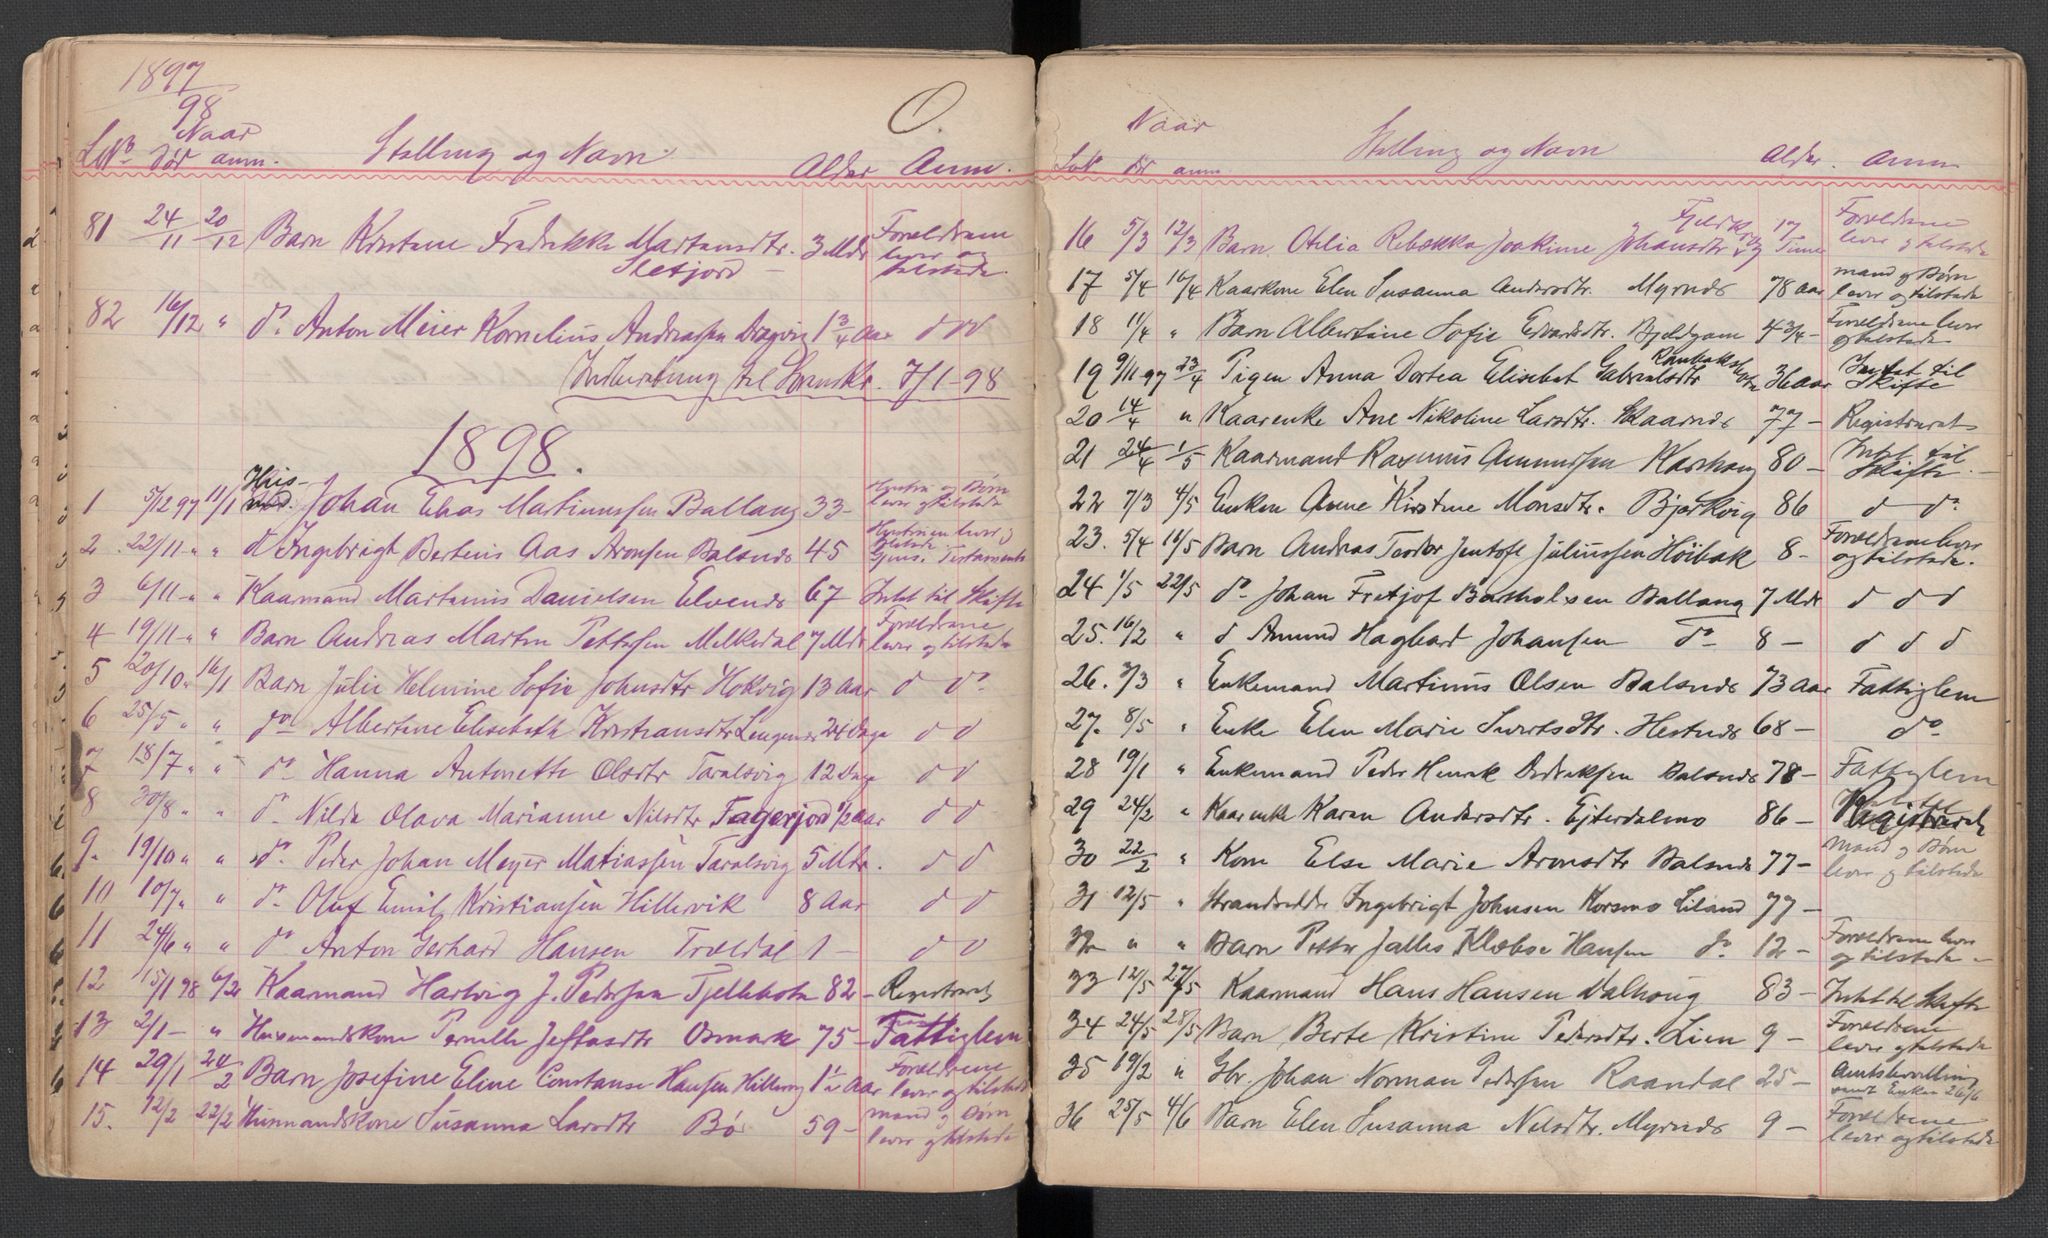 1897
98
Naar
LN° dør anm. Stilling og Navn. Alder Anm.
81 24/11 20/12 Barn Kristine Fredrikke Martinsdtr. 3 Mdr Forældrene
Sletjord lever og tilstede
82 16/12 " d° Anton Meier Kornelius Andreassen Dragvig 1 3/4 Aar d d d
Indberetning til Sorenskr. 7/1-98
1898.
Huus-
1 5/12 97 11/1 md. Johan Elias Martinussen Ballang 33 - Hustru og Børn lever og tilstede
2 22/11 - " " d Ingebrigt Berteus Aas Aronsen Balsnes 45 Hustruen lever Gjens. Testamente
3 6/11 - " " Kaarmand Martinus Danielsen Elvenes 67 Intet til Skifte
4 19/11 - " " Barn Andreas Martin Pettersen Melkedal 7 Mdr Forældrene lever og tilstede
5 20/10 " 16/1 Barn Julie Helmine Sofie Johnsdtr Hokvig 13 Aar d d°
6 25/5 " " d° Albertine Elisebeth Kristiansdtr Lengenes 24 Dage d d
7 18/7 " " d° Hanna Antonette Olsdtr Taralsvig 12 Dage d d
8 30/8 " " d° Nilda Olava Marianne Nilsdtr Fagerjord 1/2 Aar d d
9. 19/10 " " d°. Peder Johan Meyer Matiassen Taralsvig 5 Mdr. d d
10 10/7 " " d° Oluf Emil Kristiansen Hillervik 8 Aar d d
11 24/6 " " d° Anton Gerhard Hansen Trældal 1 - d d
12 15/1 98 6/2 Kaarmand Hartvig J. Pedersen Fjellbota 82 - Registreret
13 2/1 - " Husmandskone Pernille Jeftasdtr Osmark 75 - Fattiglem
14 29/1 20/2 Barn Josefine Eline Constanse Hansen Hillervig 1 1/2 Aar Forældrene lever og tilstede
15. 12/2 22/2 Husmandskone Susanna Larsdtr Bø 59 - mand og Børn lever og tilstede
Naar
LN° dør anm. Stilling og Navn Alder. Anm
16 5/3 12/3 Barn. Otelia Rebekka Joakime Johansdtr 17 Timer Forældrene lever og tilstede
17 5/4 16/4 Kaarkone Elen Susanna Andersdtr. Myrnes 78 Aar mand og Børn lever og tilstede
18 11/4 " Barn Albertine Sofie Edvardsdtr. Bjeldgam 4 3/4 - Forældrene lever og tilstede
19 9/11 97 23/4 Pigen Anna Dortea Elisebet Gabrielsdtr 36 Aar Intet til Skifte
20 14/4 " Kaarenke Ane Nikoline Larsdtr. Skaarnes 77 - Registreret
21 24/4 1/5 Kaarmand Rasmus Amundsen Karhaug 80 - Intet til Skifte
22 7/3 4/5 Enken Anne Kirstine Monsdtr. Bjerkvig 86 d d°
23. 5/4 10/5 Barn Andreas Teodor Jentoft Juliussen Høibak 8 - Forældrene lever og tilstede.
24 1/5 22/5 d° Johan Fretjof Bartholsen Ballang 7 Mdr d d d
25. 16/2 " d Amund Hagbart Johansen d° 8 - d d d
26. 3/3 " Enkemand Martinus Olsen Balsnes 73 Aar Fattiglem
27. 8/5 " Enke Elen Marie Sivertsdtr. Hestnes 68 - d°
28 19/1 " Enkemand Peder Henrik Dedriksen Balsnes 78 - Fattiglem
29 24/2 " Kaarenke Karen Andersdtr. Efterdalmo 86 - Registreret
30 22/2 " Kone Else Marie Aronsdtr Balsnes 77 - mand og Børn lever og tilstede
31 12/5 " Strandsidder Ingebrigt Johnsen Korsmo Liland 77 -
32 " " Barn Petter Jalles Klæboe Hansen d° 12 - Forældrene lever og tilstede -
33 12/5 27/5 Kaarmand Hans Hansen Dalhoug 83 - Intet til Skifte
34 24/5 28/5 Barn Berte Kristine Pedersdtr. Lien 9 - Forældrene lever og tilstede
35 19/2 " Gbr. Johan Norman Pedersen Raandal 25 - Amtsbevilling sendt Enken 26/6
36 25/5 4/6 Barn Elen Susanna Nilsdtr. Myrnes 9 - Forældrene lever og tilstede